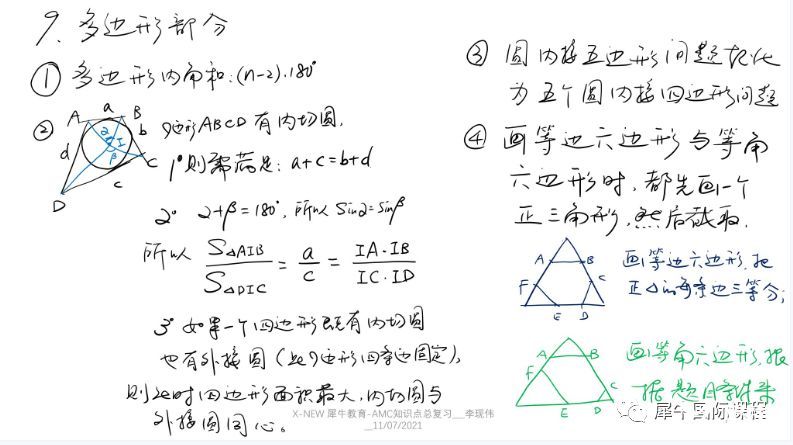 9. 多边形部分
① 多边形内角和: (n-2)·180°
②
A a B
b
C
c
D
d
I
α
β
四边形ABCD有内切圆.
1° 则需满足: a+c=b+d
2° α+β=180°, 所以 sinα=sinβ
所以 S△AIB / S△DIC = a / c = IA·IB / IC·ID
3° 如果一个四边形既有内切圆
也有外接圆 (此四边形四条边固定),
则此时四边形面积最大, 内切圆与
外接圆同心。
③ 圆内接五边形问题转化
为五个圆内接四边形问题
④ 画等边六边形与等角
六边形时, 都先画一个
正三角形, 然后截取.
A B
F C
E D
画等边六边形, 把
正△的每条边三等分;
A B
F C
E D
画等角六边形, 根
据题目条件来
X-NEW 犀牛教育-AMC知识点总复习__李现伟
__11/07/2021
犀牛国际课程